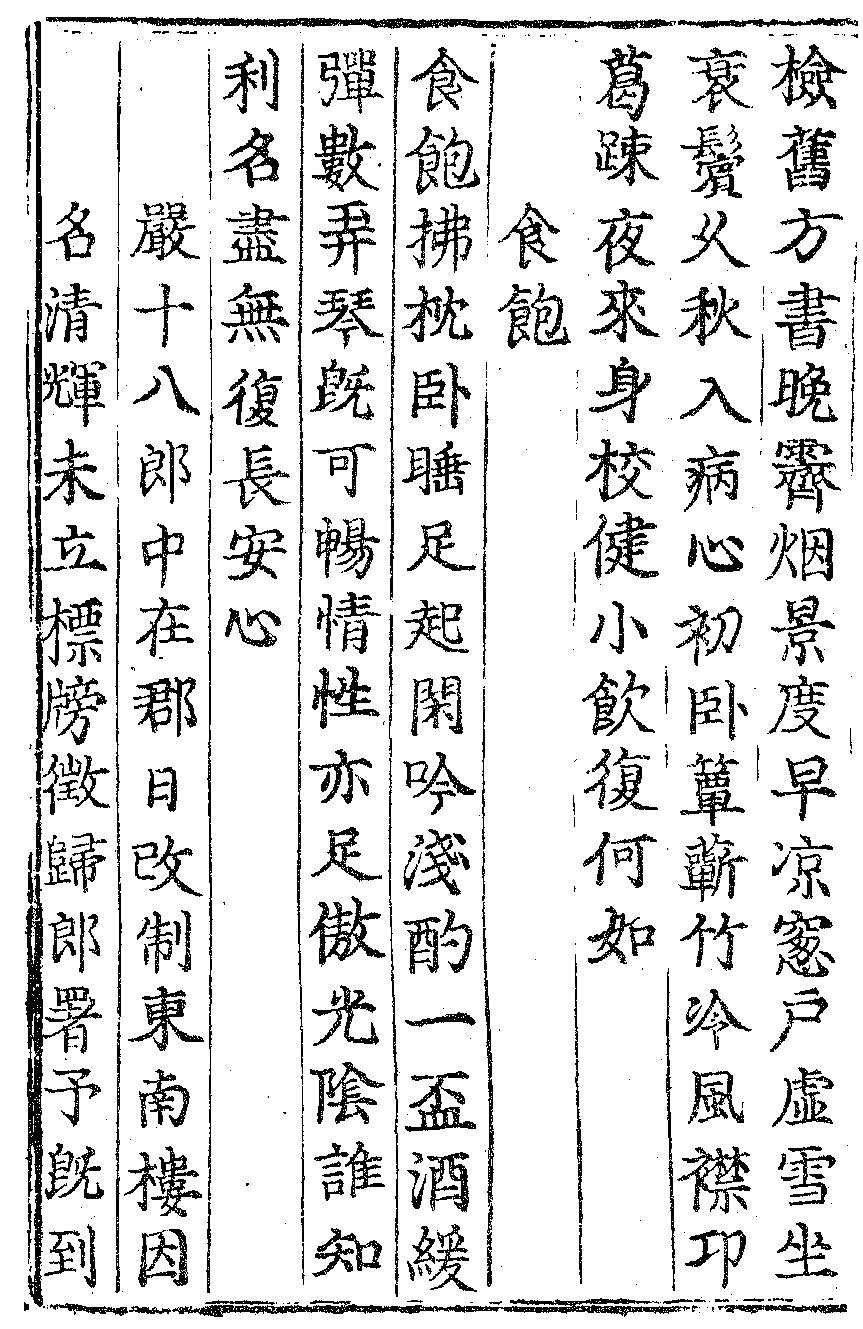 檢舊方書晚霽烟景度早凉窓戶虛雪坐
衰鬢久秋入病心初卧簟蘄竹冷風襟邛
葛踈夜來身校健小飲復何如
食飽
食飽拂枕卧睡足起閑吟淺酌一盃酒緩
彈數弄琴旣可暢情性亦足傲光陰誰知
利名盡無復長安心
嚴十八郎中在郡日改制東南樓因
名清輝未立標牓徵歸郎署予旣到